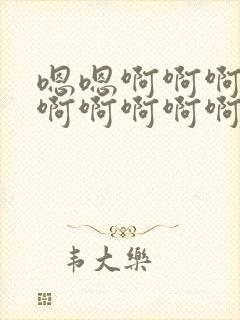 嗯嗯啊啊啊
啊啊啊啊啊
韦大樂